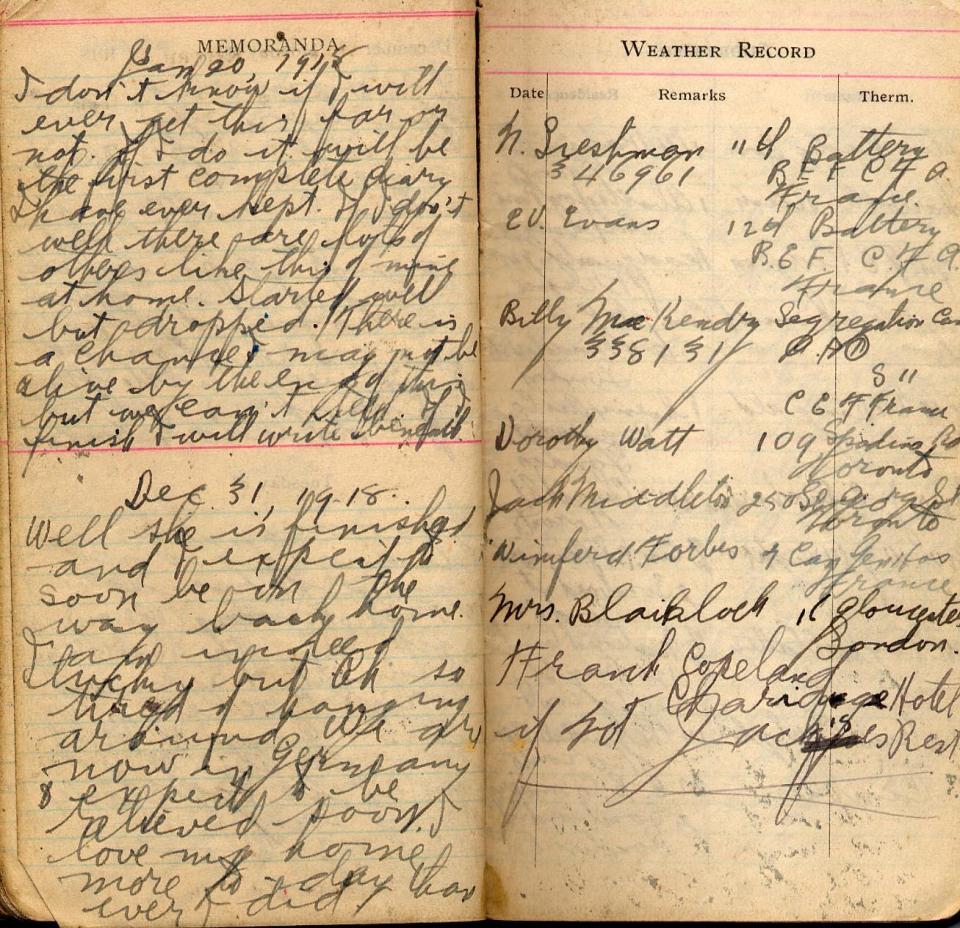 MEMORANDA
Jan 20, 191
I don't know if I will
ever get this far or
not. If I do it will be
the first complete diary
I have ever kept. If I don't
well there are lots of
others like this of mine
at home. Started well
but dropped. There is
a chance I may not be
alive by the end of this
but we can't help. If I
finish I will write beneath.
Dec 31, 1918.
Well she is finished
and I expect to
soon be on the
way back home.
I am indeed
lucky but Oh so
tired of hanging
around. We are
now in Germany
& expect to be
relieved soon. I
love my home
more to-day than
ever I did
WEATHER RECORD
Date Remarks Therm.
N. 11th Battery
346961 B E F C F A
France.
Evans 12th Battery
B.E.F. C.F.A.
France
Billy MacKendry Segregation Cam
338131
S "
C E F France
Dorothy Watt 109 Spadina Rd
Toronto
Jack Middleton 250 St
Toronto
Forbes 7 Can Gen Hos
France
Mrs. Blaiklock 11 Gloucester
London.
Frank Copeland
Hotel
if not Rest